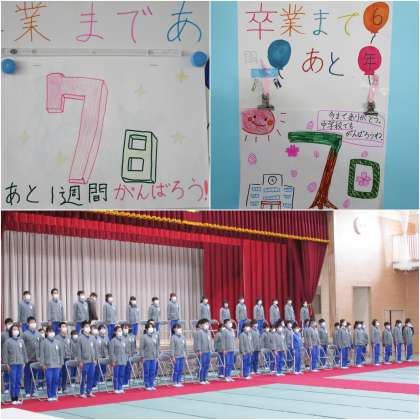 業まであ
7日
あと1週間がんばろう!
卒業まで
あと
6
年
今までありがとう。
中学校でも
がんばろうね。
7日